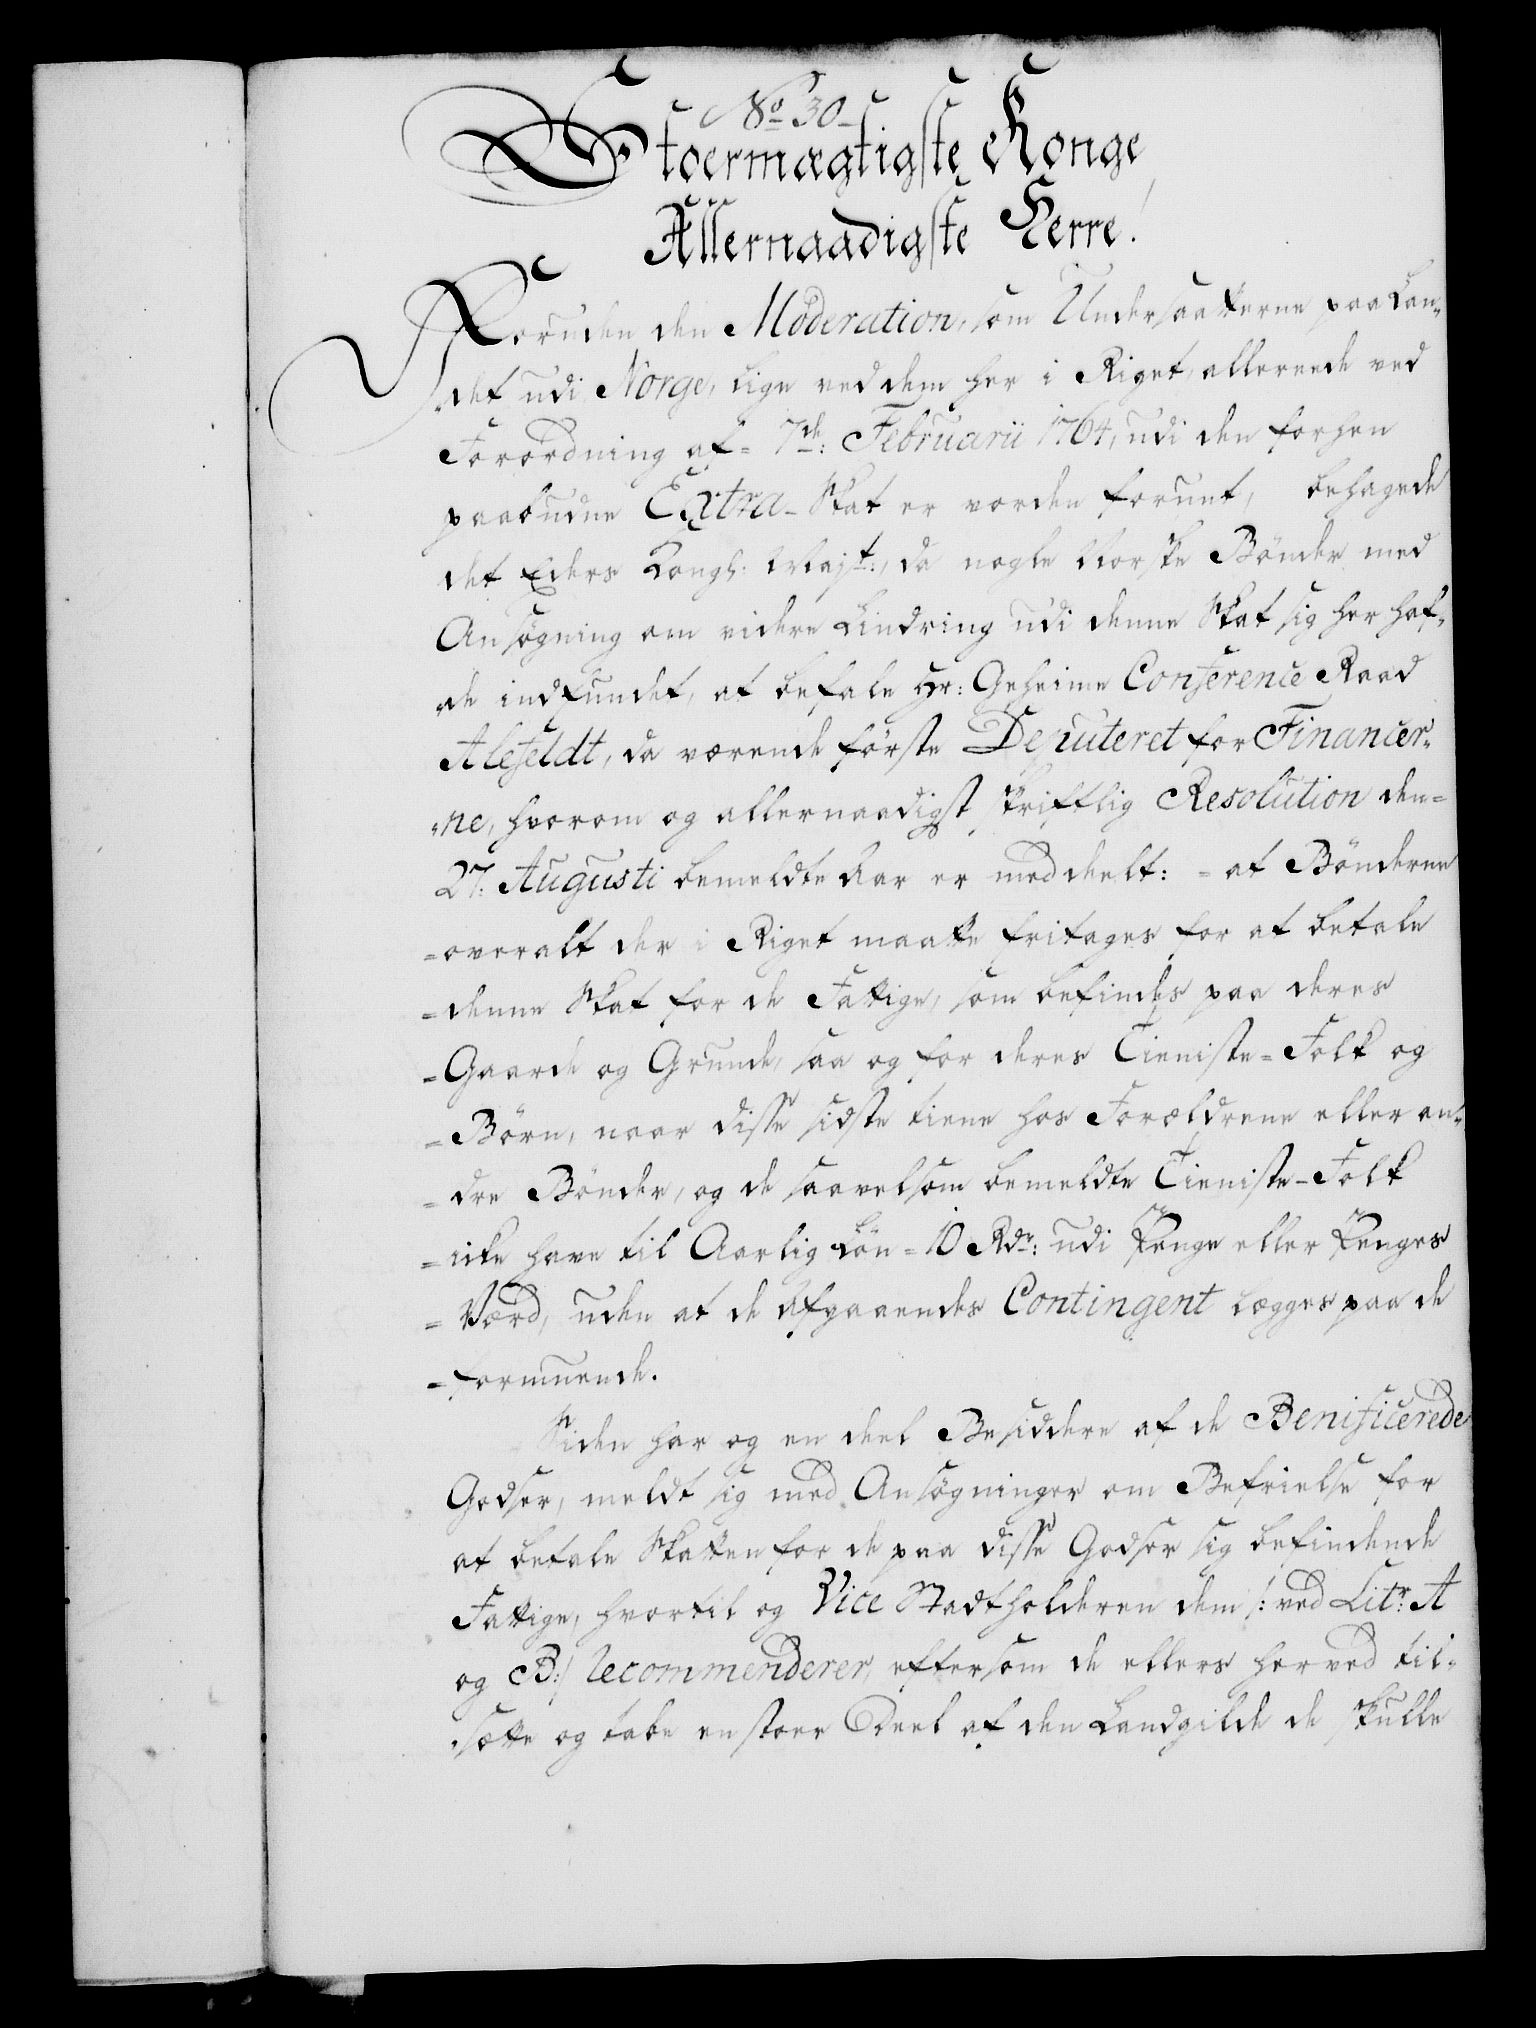 No 30
Stoermægtigste Konge
Allernaadigste Herre!
Foruden den Moderation, som Undersaatterne paa Lan-
det udi Norge, lige ved dem her i Riget, allereede ved
Forordning af 7de: Februarii 1764, udi den forhen
paabudne Extra-Skat er vorden forunt, behagede
det Eders Kongl: Majt:, da nogle Norske Bönder med
Ansøgning om videre Lindring udi denne Skat sig her haf-
de indfundet, at befale Hr: Geheime Conference Raad
Alefeldt, da værende förste Deputeret for Financer-
ne, hvorom og allernaadigst skriftlig Resolution den
27: Augusti bemeldte Aar er meddeelt: = at Bönderne
= overalt der i Riget maatte fritages for at betale
= denne Skat for de Fattige, som befindes paa deres
= Gaarde og Grunde, saa og for deres Tieniste-Folk og
= Börn, naar disse sidste tiene hos Forældrene eller an-
= dre Bönder, og de saavelsom bemeldte Tieniste-Folk
= icke have til Aarlig Lön = 10 Rdr: udi Penge eller Penges
= Værd, uden at de Afgaaendes Contingent lægges paa de
= formuende.
Siden har og en deel Besiddere af de Benificerede
Godser, meldt sig med Ansøgninger om Befrielse for
at betale Skatten for de paa disse Godser sig befindende
Fattige, hvortil og Vice Stadtholderen dem /: ved Litr: A
og B:/ recommenderer, eftersom de ellers herved til-
sætte og tabe en stoer Deel af den Landgilde de skulle